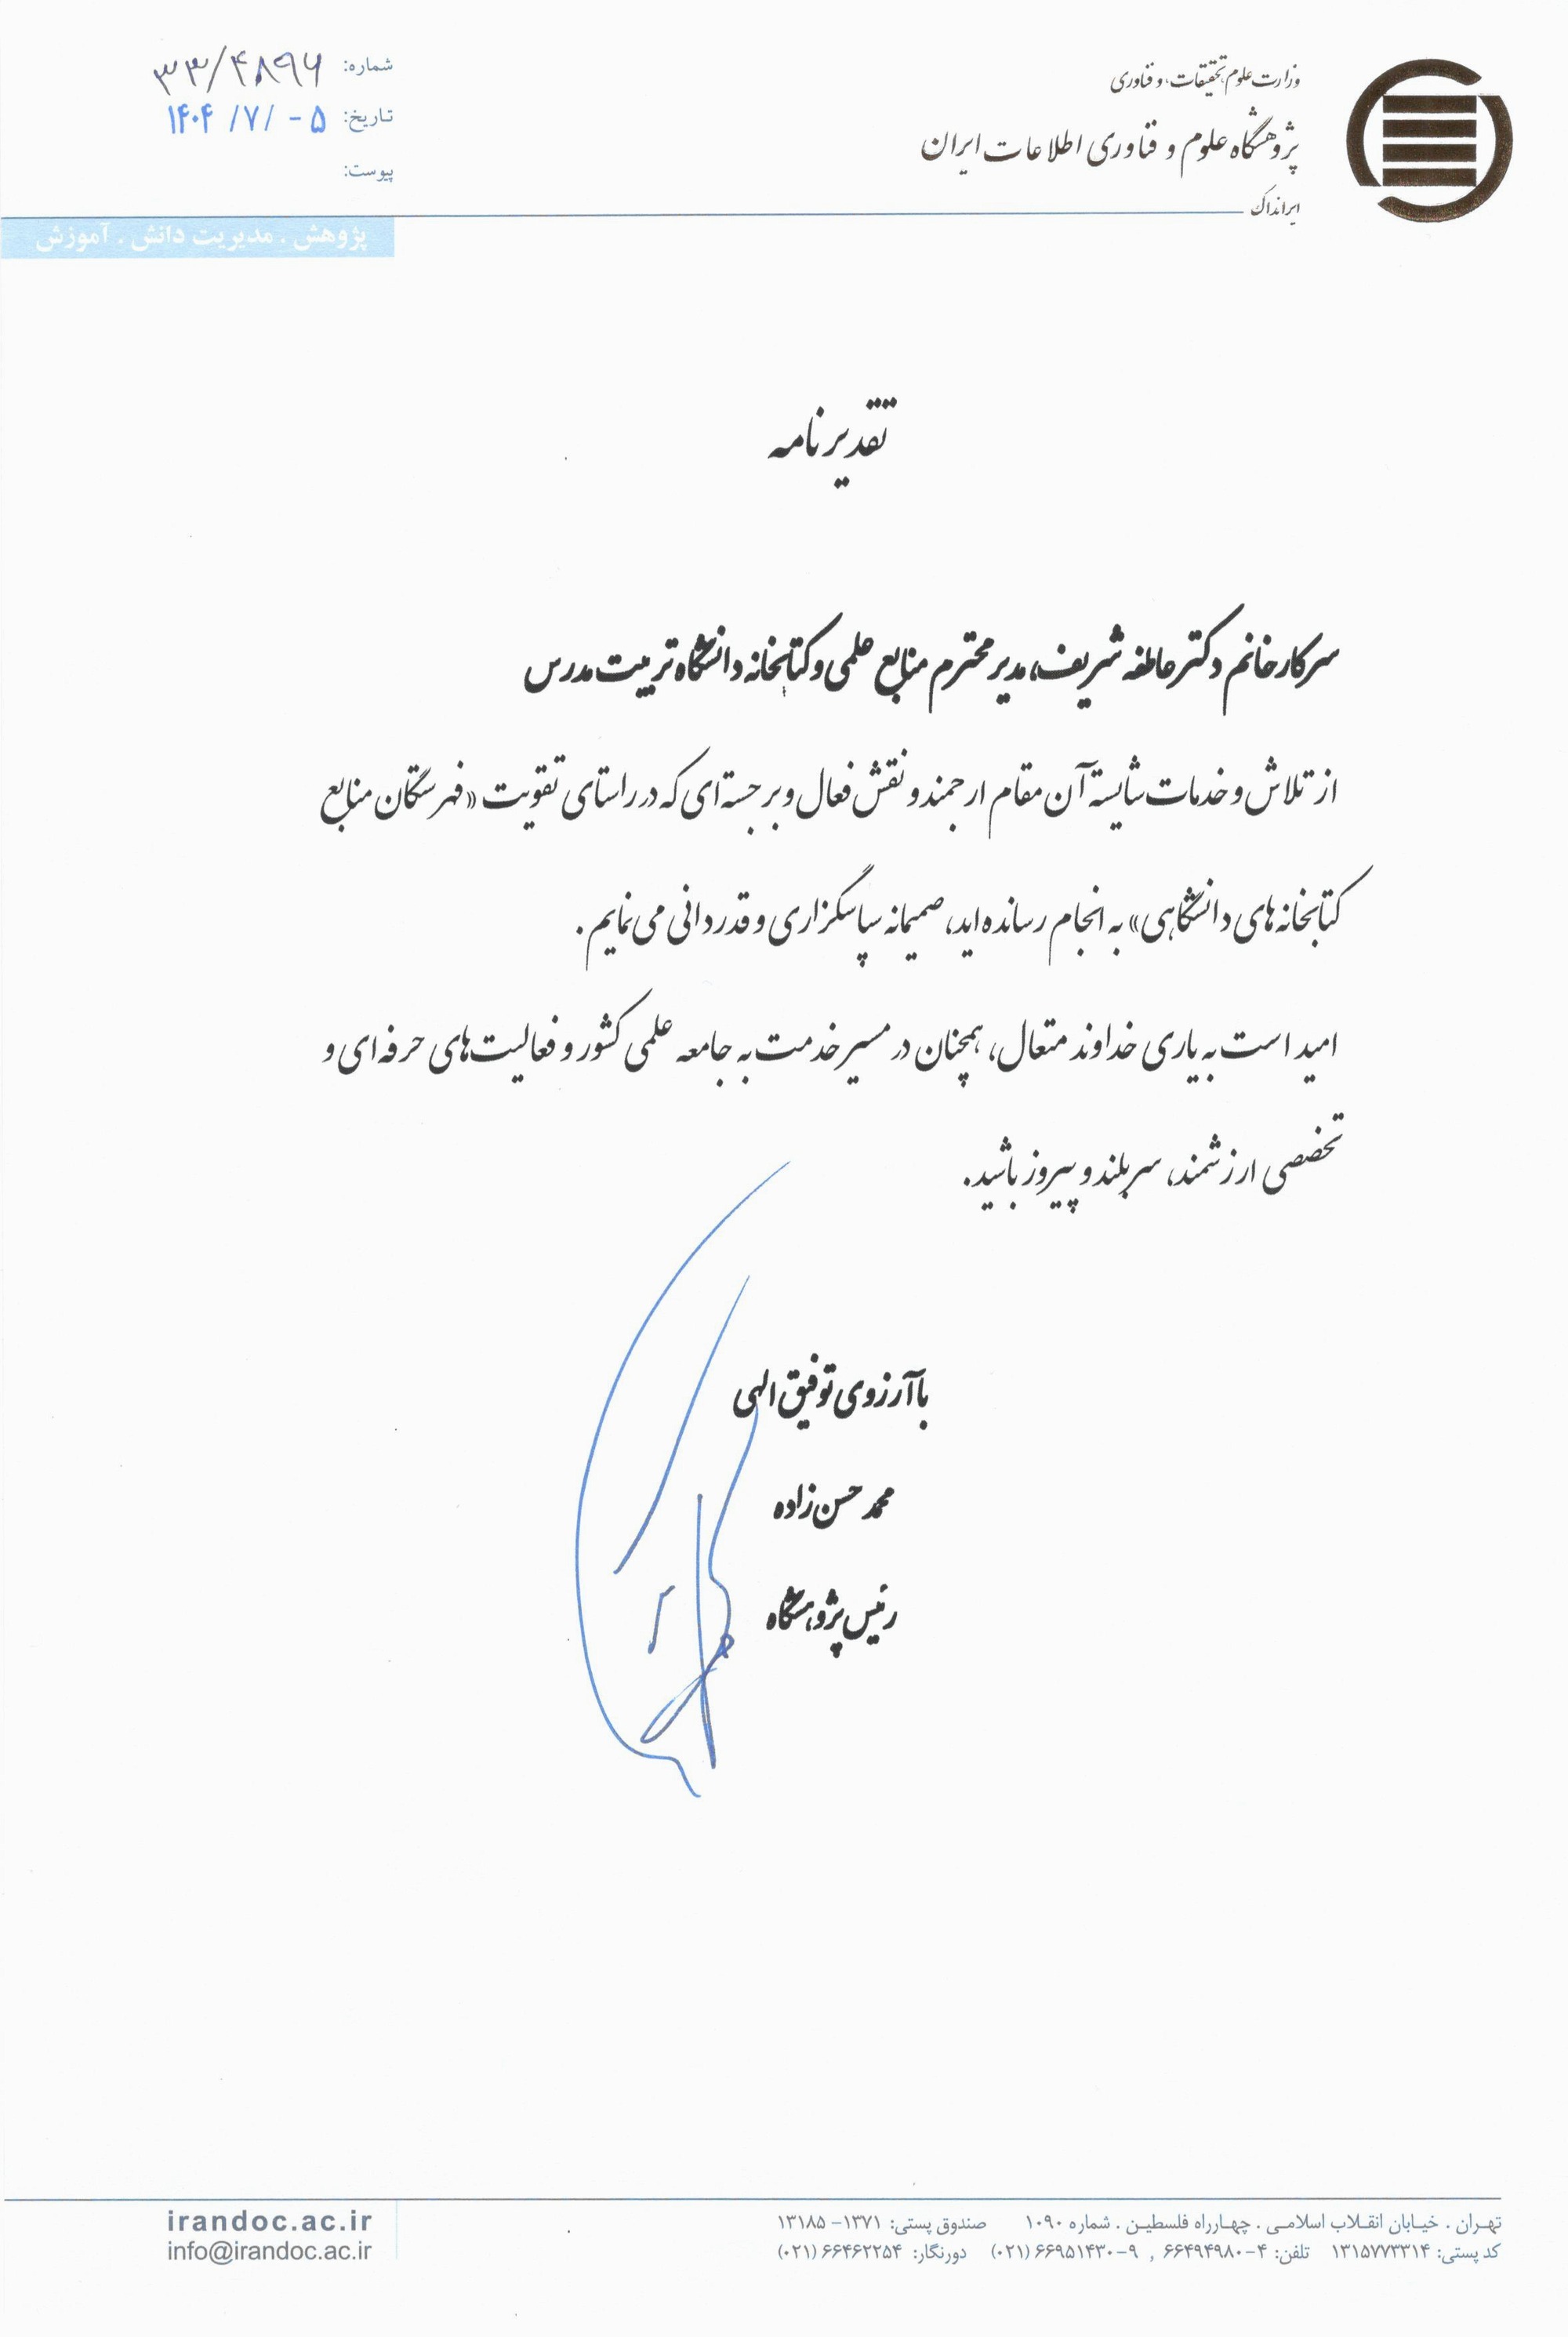 وزارت علوم، تحقیقات، و فناوری
پژوهشگاه علوم و فناوری اطلاعات ایران
ایرانداک
شماره: ۳۳/۴۸۹۶
تاریخ: ۵ - /۷/ ۱۴۰۴
پیوست:
پژوهش . مدیریت دانش . آموزش
تقدیرنامه
سرکار خانم دکتر عاطفه شریف، مدیر محترم منابع علمی و کتابخانه دانشگاه تربیت مدرس
از تلاش و خدمات شایسته آن مقام ارجمند و نقش فعال و برجسته‌ای که در راستای تقویت «فهرستگان منابع
کتابخانه‌های دانشگاهی» به انجام رسانده‌اید، صمیمانه سپاسگزاری و قدردانی می‌نمایم.
امید است به یاری خداوند متعال، همچنان در مسیر خدمت به جامعه علمی کشور و فعالیت‌های حرفه‌ای و
تخصصی ارزشمند، سربلند و پیروز باشید.
با آرزوی توفیق الهی
محمد حسن‌زاده
رئیس پژوهشگاه
تهران . خیابان انقلاب اسلامی . چهارراه فلسطین . شماره ۱۰۹۰ صندوق پستی: ۱۳۷۱- ۱۳۱۸۵
کد پستی: ۱۳۱۵۷۷۳۳۱۴ تلفن: ۴-۶۶۴۹۴۹۸۰ , ۹-۶۶۹۵۱۴۳۰ (۰۲۱) دورنگار: ۶۶۴۶۲۲۵۴ (۰۲۱)
irandoc.ac.ir
info@irandoc.ac.ir